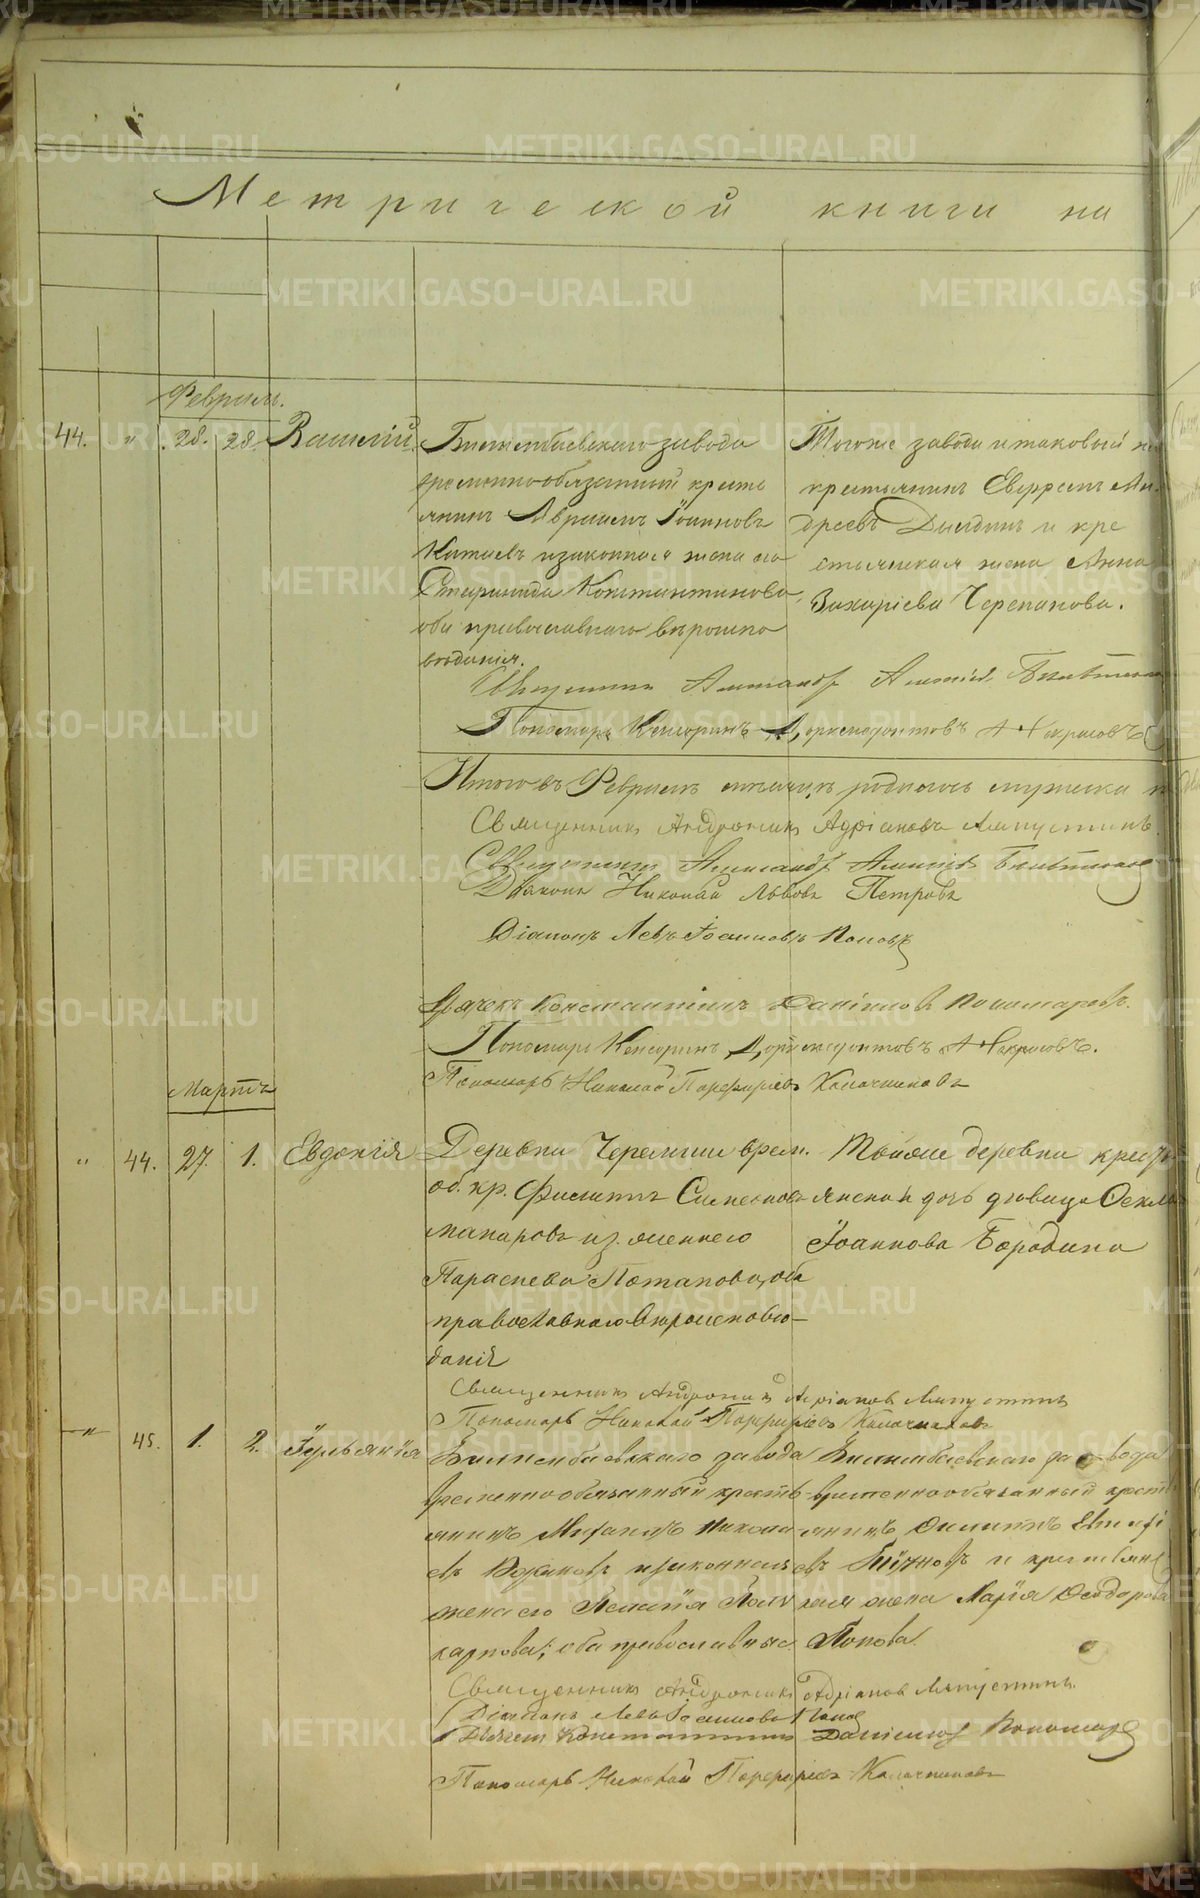 Метрической книги на
Февраль.
44. " 28. 28. Василій.
Билимбаевскаго завода
временнообязанный кресть
янинъ Авраамъ Іоанновъ
и законная жена его
Константинова,
оба православнаго вѣроиспо
вѣданія.
Тогоже завода и таковый же
крестьянинъ Ан
дреевъ и кре
стьянская жена Анна
Захаріева Черепанова.
Священникъ Александр Алексіев
Пономарь Кенсоринъ Доримедонтовъ Некрасовъ
Итого въ Февралѣ мѣсяцѣ родилось мужеска
Священникъ Андроникъ Адріановъ Ляпустинъ.
Священникъ Александр Алексіев
Діаконъ Николай Львовъ Петровъ
Діаконъ Левъ Іоанновъ Поповъ
Дьячекъ Константинъ Даніиловъ Пономаревъ.
Пономарь Кенсоринъ Доримедонтовъ Некрасовъ.
Пономарь Николай Порфиріевъ Калачниковъ
Мартъ
" 44. 27. 1. Евдокія
Деревни Черемши врем.
об. кр. Филиппъ Симеоновъ
Макаровъ и з. жена его
Параскева Потапова, оба
православнаго вѣроисповѣ-
данія
Тойже деревни кресть
янская дочь дѣвица
Іоаннова Бородина
Священникъ Андроникъ Адріановъ Ляпустинъ
Пономарь Николай Порфиріевъ Калачниковъ
" 45. 1. 2.
Билимбаевскаго завода
временнообязанный кресть-
янинъ Михаилъ Никола
евъ и законная
жена его Пелагія Поли
карпова; оба православные.
Билимбаевскаго завода
временнообязанный кресть
янинъ Филиппъ
евъ и крестьянс
кая жена Марія Ѳеодорова
Попова.
Священникъ Андроникъ Адріановъ Ляпустинъ.
Діаконъ Левъ Іоанновъ Поповъ
Дьячекъ Константинъ Даніиловъ Пономарев
Пономарь Николай Порфиріевъ Калачниковъ
METRIKI.GASO-URAL.RU